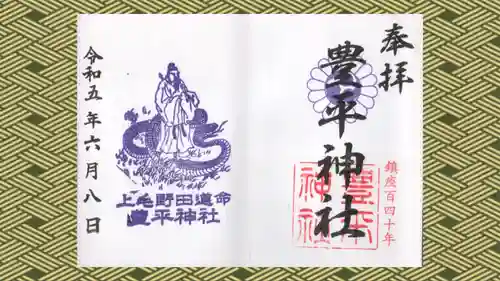 奉拝
豊平神社
鎮座百四十年
豊平
神社
上毛野田道命
豊平神社
令和五年六月八日